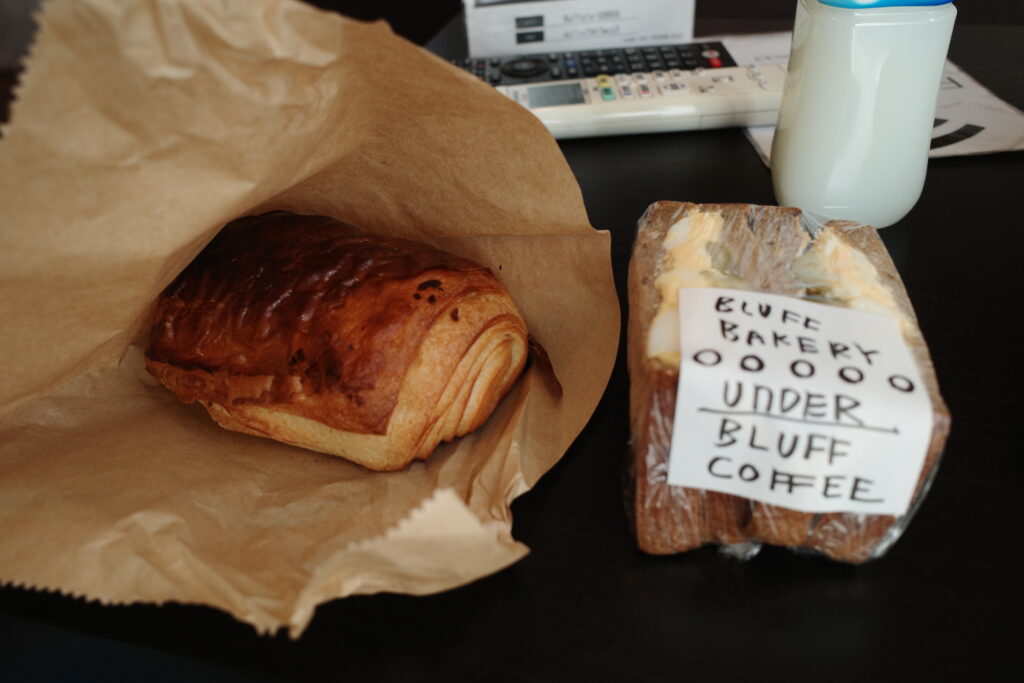 BLUFF
BAKERY
OOOOO
UNDER
BLUFF
COFFEE